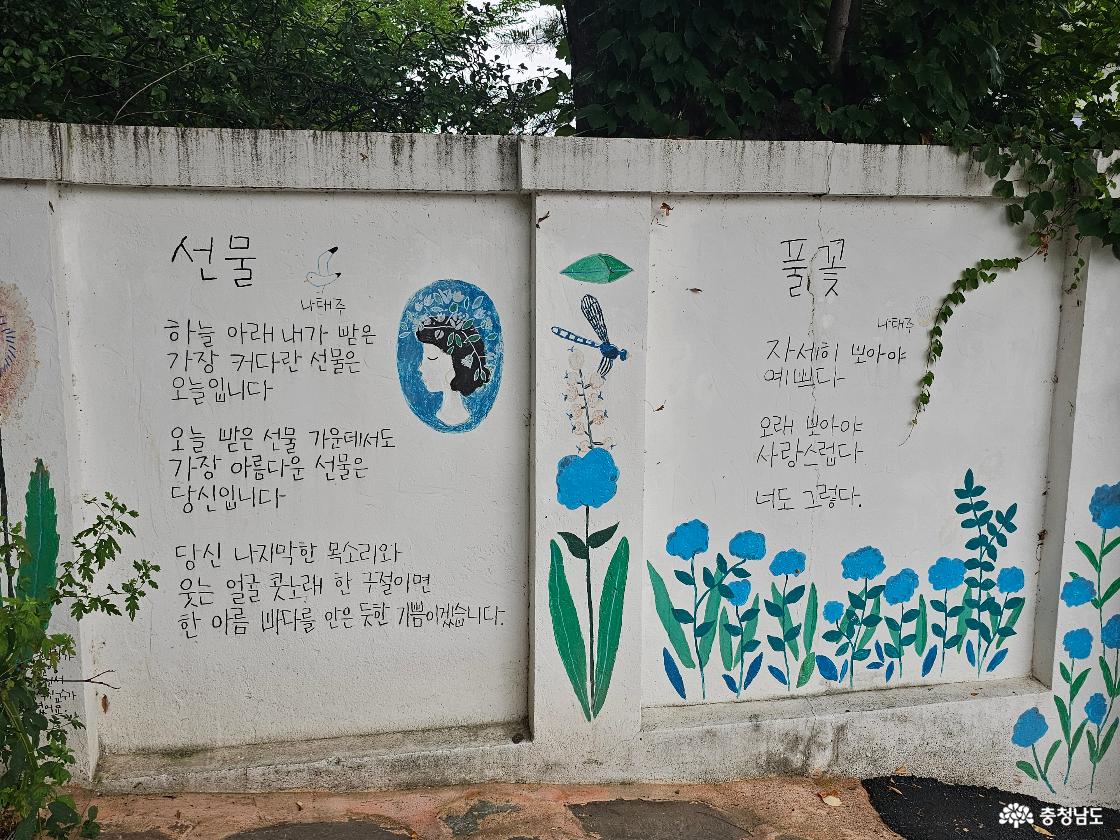 선물
나태주
하늘 아래 내가 받은
가장 커다란 선물은
오늘입니다
오늘 받은 선물 가운데서도
가장 아름다운 선물은
당신입니다
당신 나지막한 목소리와
웃는 얼굴 콧노래 한 구절이면
한 아름 바다를 안은 듯한 기쁨이겠습니다.
풀꽃
나태주
자세히 보아야
예쁘다
오래 보아야
사랑스럽다
너도 그렇다.
충청남도